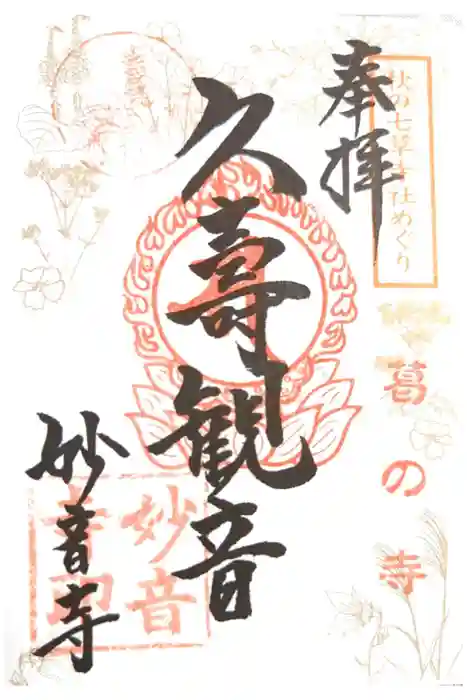 奉拝
秋の七草寺社めぐり
葛の寺
久壽観音
妙音寺
妙音
寺印